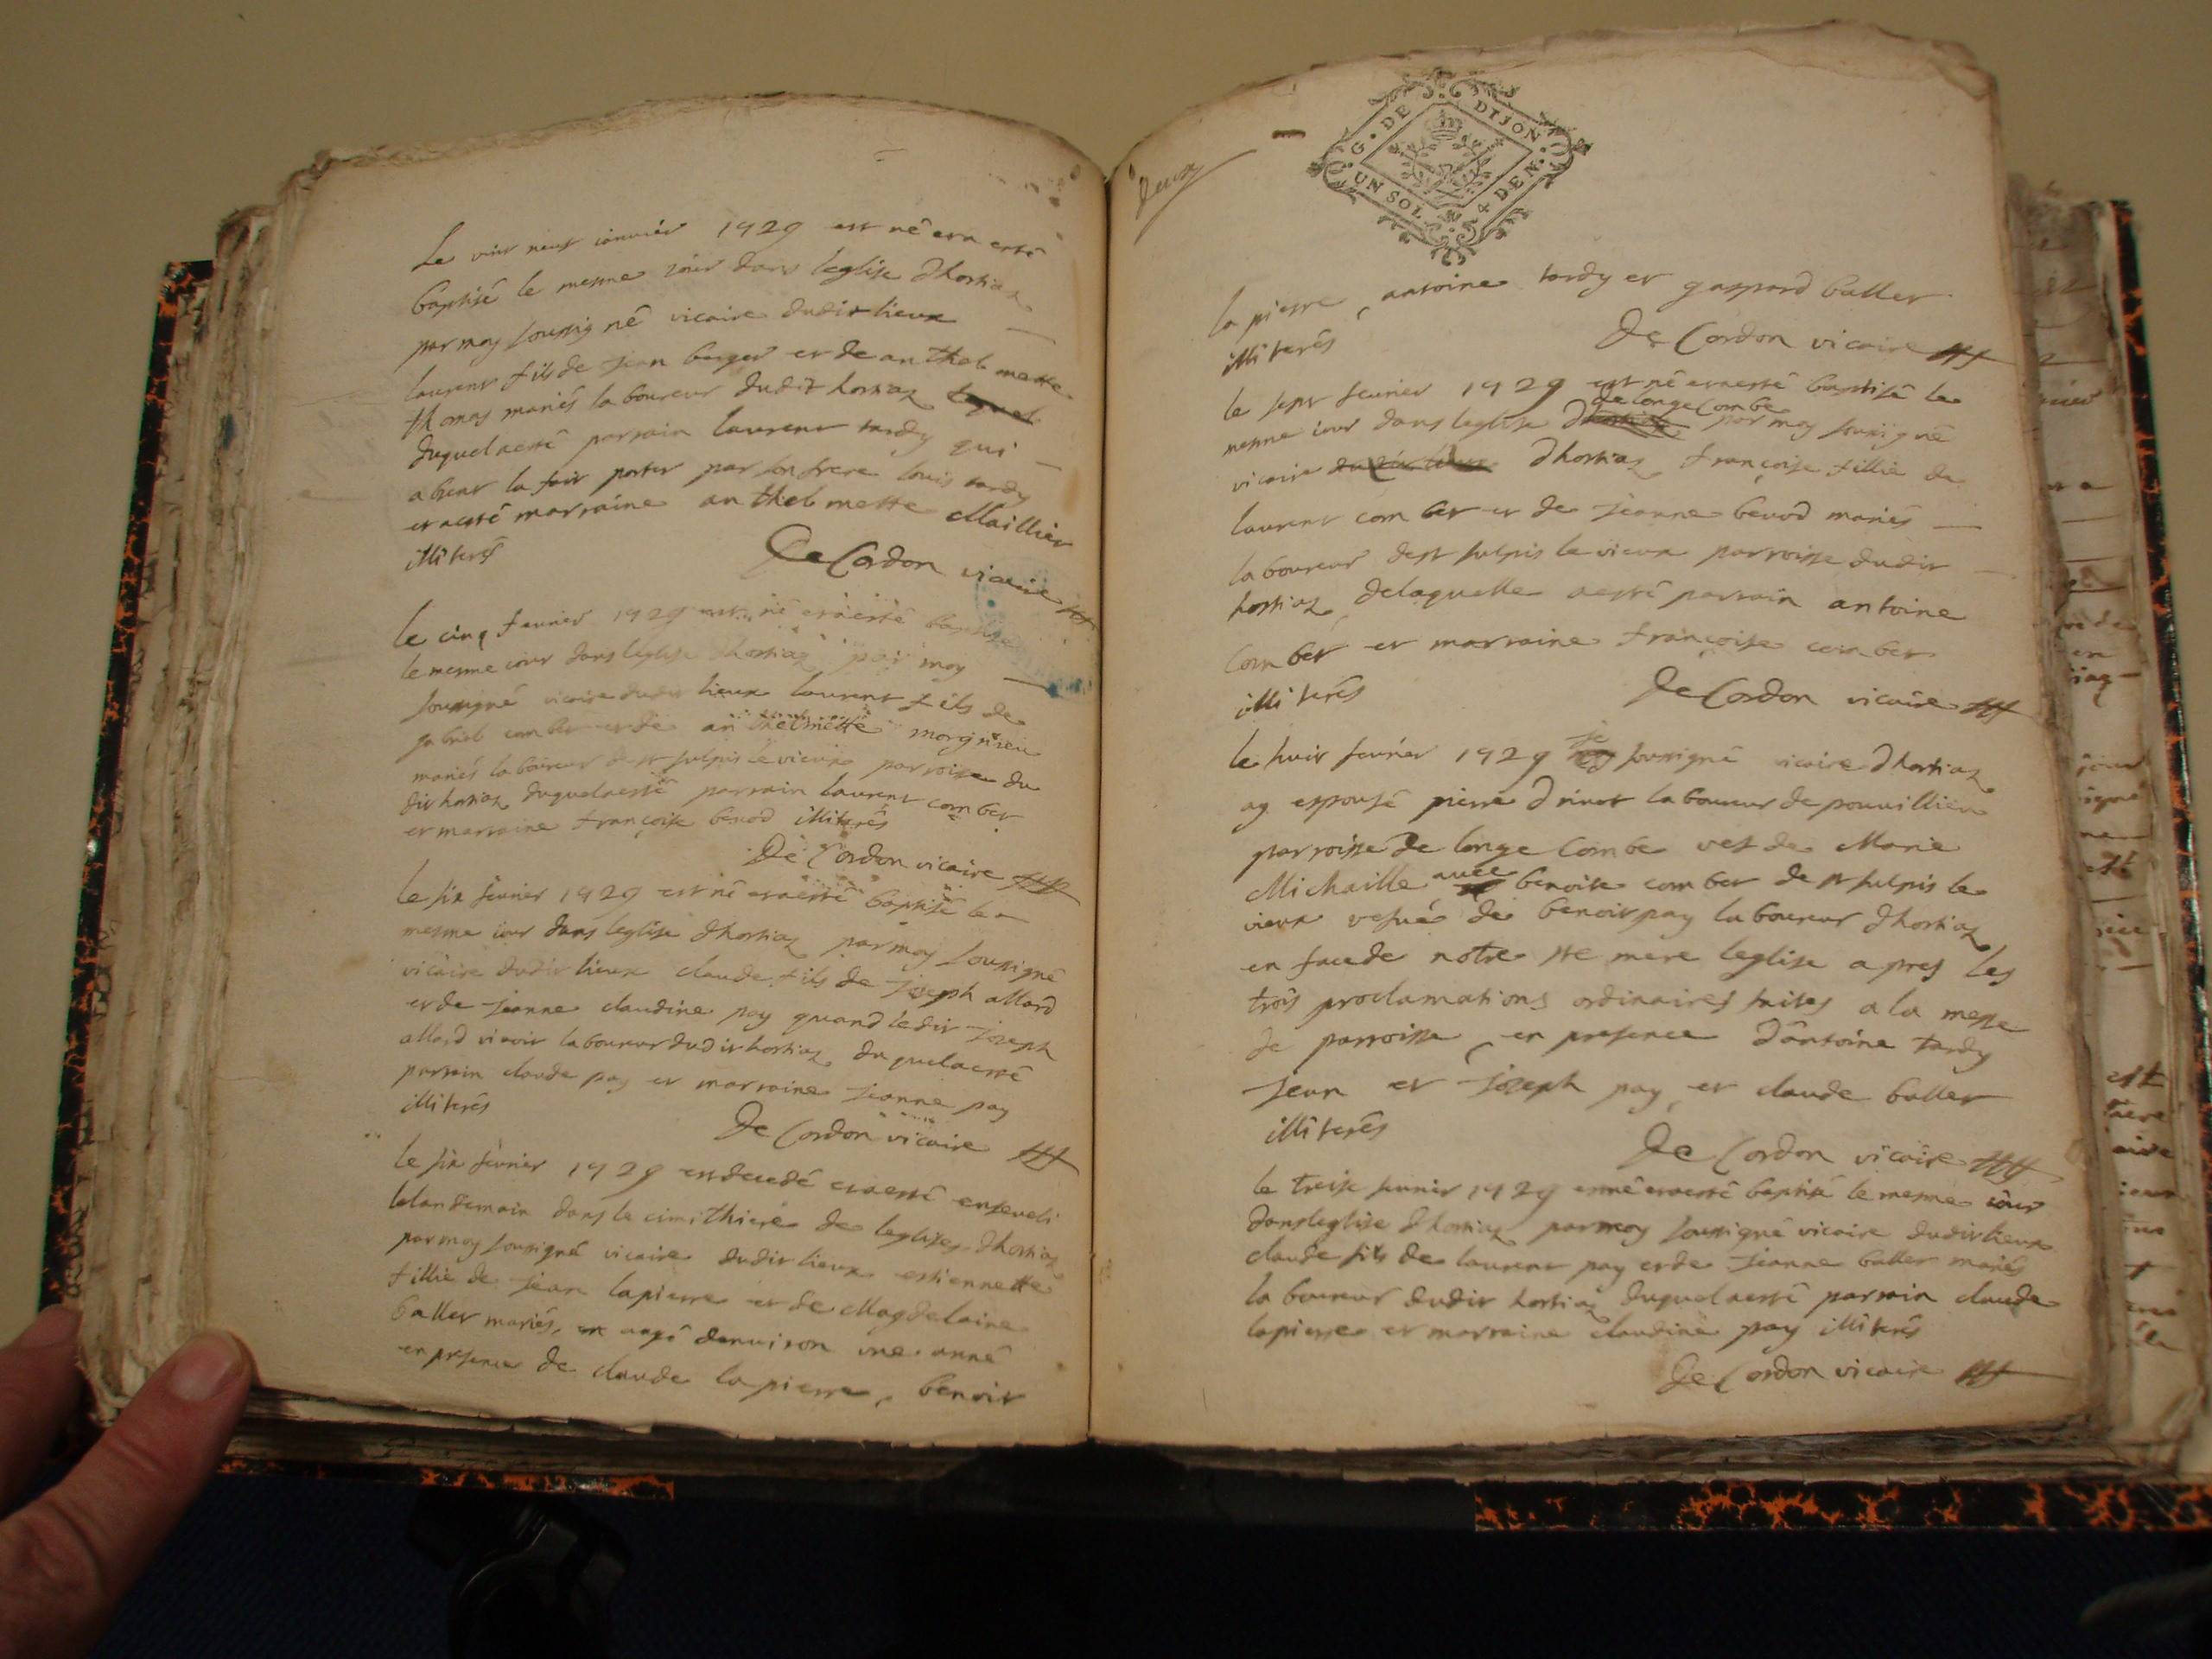 Le vint neuf ianvier 1729 est né et a esté
baptisé le mesme iour dans leglise dhostiaz
par moy soussigné vicaire dudit lieux
laurent fils de jean berger et de anthelmette
thomas mariés laboureur dudit hostiaz
duquel a esté parrain laurent tardy qui
a heut la fair porter par son frere louis tardy
et a esté marraine anthelmette Maillier
illiterés
De Cordon vicaire
le cinq fevrier 1729 est né et a esté baptisé
le mesme iour dans leglise dhostiaz par moy
soussigné vicaire dudit lieux laurent fils de
gabriel comber et de anthelmette morginieu
mariés laboureur de st sulpis le vieux parroisse du
dit hostiaz duquel a esté parrain laurent comber
et marraine françoise bevod illiterés
De Cordon vicaire
le six fevrier 1729 est né et a esté baptisé le
mesme iour dans leglise dhostiaz par moy soussigné
vicaire dudit lieux claude fils de joseph allard
et de jeanne claudine pay quand ledit joseph
allard vivoit laboureur dudit hostiaz duquel a esté
parrain claude pay et marraine jeanne pay
illiterés
De Cordon vicaire
le six fevrier 1729 est decedé et a esté enseveli
lelandemain dans le cimithiere de leglise dhostiaz
par moy soussigné vicaire dudit lieux estiennette
fillie de jean lapierre et de Magdelaine
baller mariés, aagé denviron une anné
en presence de claude lapierre, benoit
deux
G. DE DIJON
UN SOL 4 DEN.
la pierre, antoine tardy et gaspard baller
illiterés
De Cordon vicaire
le sept fevrier 1729 est né et a esté baptisé le
de longecombe
mesme iour dans leglise par moy soussigné
vicaire dhostiaz françoise fillie de
laurent comber et de jeanne bevod mariés
laboureur de st sulpis le vieux parroisse dudit
hostiaz delaquelle a esté parrain antoine
comber et marraine françoise comber
illiterés
De Cordon vicaire
le huit fevrier 1729 je soussigné vicaire dhostiaz
ay espousé pierre drivet laboureur de pouvillieu
parroisse de longe combe vef de Marie
Michaille avec benoite comber de st sulpis le
vieux vefve de benoit pay laboureur dhostiaz
en face de notre ste mere leglise apres les
trois proclamations ordinaires faites a la messe
de parroisse en presence dantoine tardy
jean et joseph pay et claude baller
illiterés
De Cordon vicaire
le treise fevrier 1729 est né et a esté baptisé le mesme iour
dans leglise dhostiaz par moy soussigné vicaire dudit lieux
claude fils de laurent pay et de jeanne baller mariés
laboureur dudit hostiaz duquel a esté parrain claude
lapierre et marraine claudine pay illiterés
De Cordon vicaire